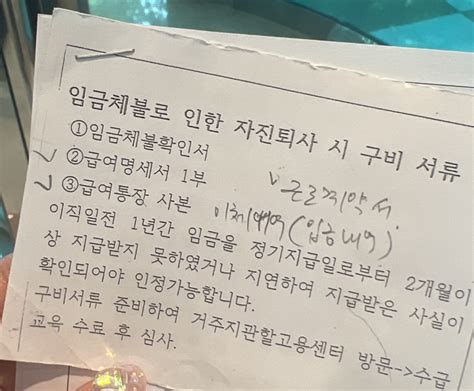 임금체불로 인한 자진퇴사 시 구비 서류
①임금체불확인서
②급여명세서 1부
∨ 근로계약서
③급여통장 사본 이체내역(입금내역)
이직일전 1년간 임금을 정기지급일로부터 2개월이
상 지급받지 못하였거나 지연하여 지급받은 사실이
확인되어야 인정가능합니다.
구비서류 준비하여 거주지관할고용센터 방문->수급
교육 수료 후 심사.